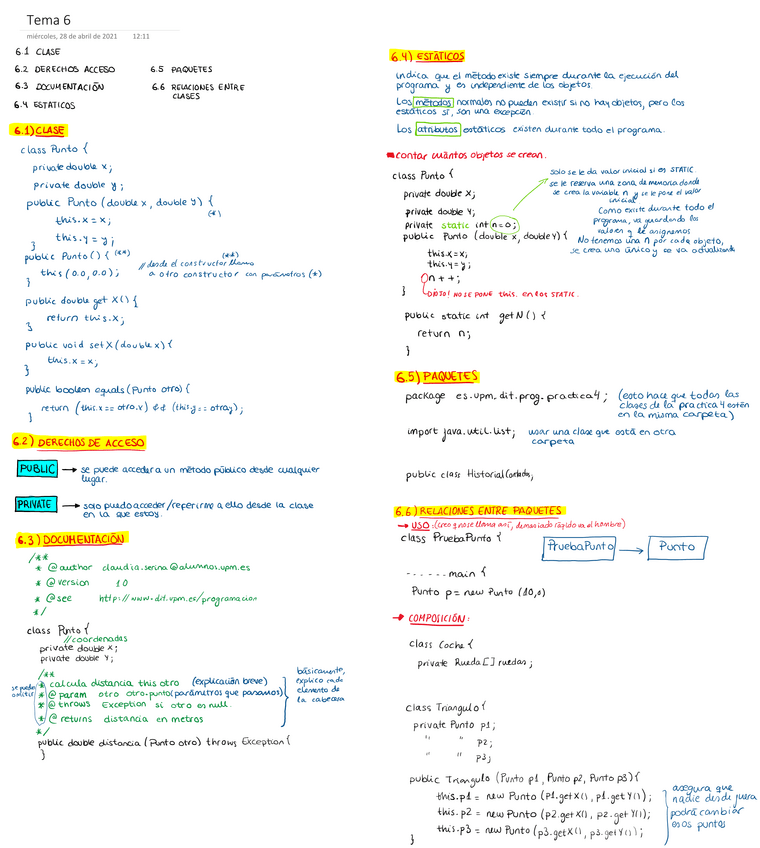 Tema 6
miércoles, 28 de abril de 2021 12:11
6.1 CLASE
6.2 DERECHOS ACCESO
6.3 DOCUMENTACIÓN
6.4 ESTATICOS
6.5 PAQUETES
6.6 RELACIONES ENTRE
CLASES
6.1) CLASE
class Punto {
private double x;
private double y;
public Punto (double x, double y) {
(*)
this.x = x;
this.y = y;
}
public Punto() { (**)
this (0.0, 0.0);
}
(**)
// desde el constructor llamo
a otro constructor con parámetros (*)
public double get X() {
return this.x;
}
public void set X (double x) {
this.x = x;
}
public boolean equals (Punto otro) {
return (this.x == otro.x) && (this.y == otro.y);
}
6.2) DERECHOS DE ACCESO
PUBLIC → se puede acceder a un método público desde cualquier
lugar.
PRIVATE → solo puedo acceder/referirme a ello desde la clase
en la que estoy.
6.3) DOCUMENTACIÓN
/**
* @author claudia.serina@alumnos.upm.es
* @version 1.0
* @see http://www.dit.upm.es/programacion
*/
class Punto {
//coordenadas
private double x;
private double y;
/**
* calcula distancia this otro (explicación breve)
* @param otro otro.punto (parámetros que pasamos)
* @throws Exception si otro es null.
* @returns distancia en metros
*/
se puede
omitir
básicamente,
explico cada
elemento de
la cabecera
public double distancia (Punto otro) throws Exception {
}
6.4) ESTÁTICOS
Indica que el método existe siempre durante la ejecución del
programa y es independiente de los objetos.
Los métodos normales no pueden existir si no hay objetos, pero los
estáticos sí, son una excepción.
Los atributos estáticos existen durante todo el programa.
contar cuántos objetos se crean.
class Punto {
private double x;
private double y;
private static int n=0;
public Punto (double x, double y) {
this.x=x;
this.y=y;
n++;
}
¡OJO! NO SE PONE this. en los STATIC.
solo se le da valor inicial si es STATIC.
se le reserva una zona de memoria donde
se crea la variable n y se le pone el valor
inicial
Como existe durante todo el
programa, va guardando los
valores q le asignemos
No tenemos una n por cada objeto,
se crea uno único y se va actualizando
public static int getN() {
return n;
}
6.5) PAQUETES
package es.upm.dit.prog.practica4; (esto hace que todas las
clases de la practica 4 estén
en la misma carpeta)
import java.util.list; usar una clase que está en otra
carpeta
public class HistorialContactos;
6.6) RELACIONES ENTRE PAQUETES
→ USO: (creo q no se llama así, demasiado rápido va el hombre)
class PruebaPunto {
PruebaPunto → Punto
- - - - - - main {
Punto p = new Punto (10,0)
→ COMPOSICIÓN:
class Coche {
private Rueda[] ruedas;
class Triangulo {
private Punto p1;
" " p2;
" " p3;
public Triangulo (Punto p1, Punto p2, Punto p3) {
this.p1 = new Punto (p1.getX(), p1.getY());
this.p2 = new Punto (p2.getX(), p2.getY());
this.p3 = new Punto (p3.getX(), p3.getY());
}
asegura que
nadie desde fuera
podrá cambiar
esos puntos